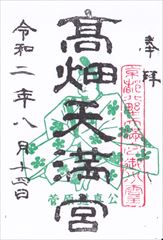 奉拝
髙畑天満宮
菅原道真公
令和二年八月十五日